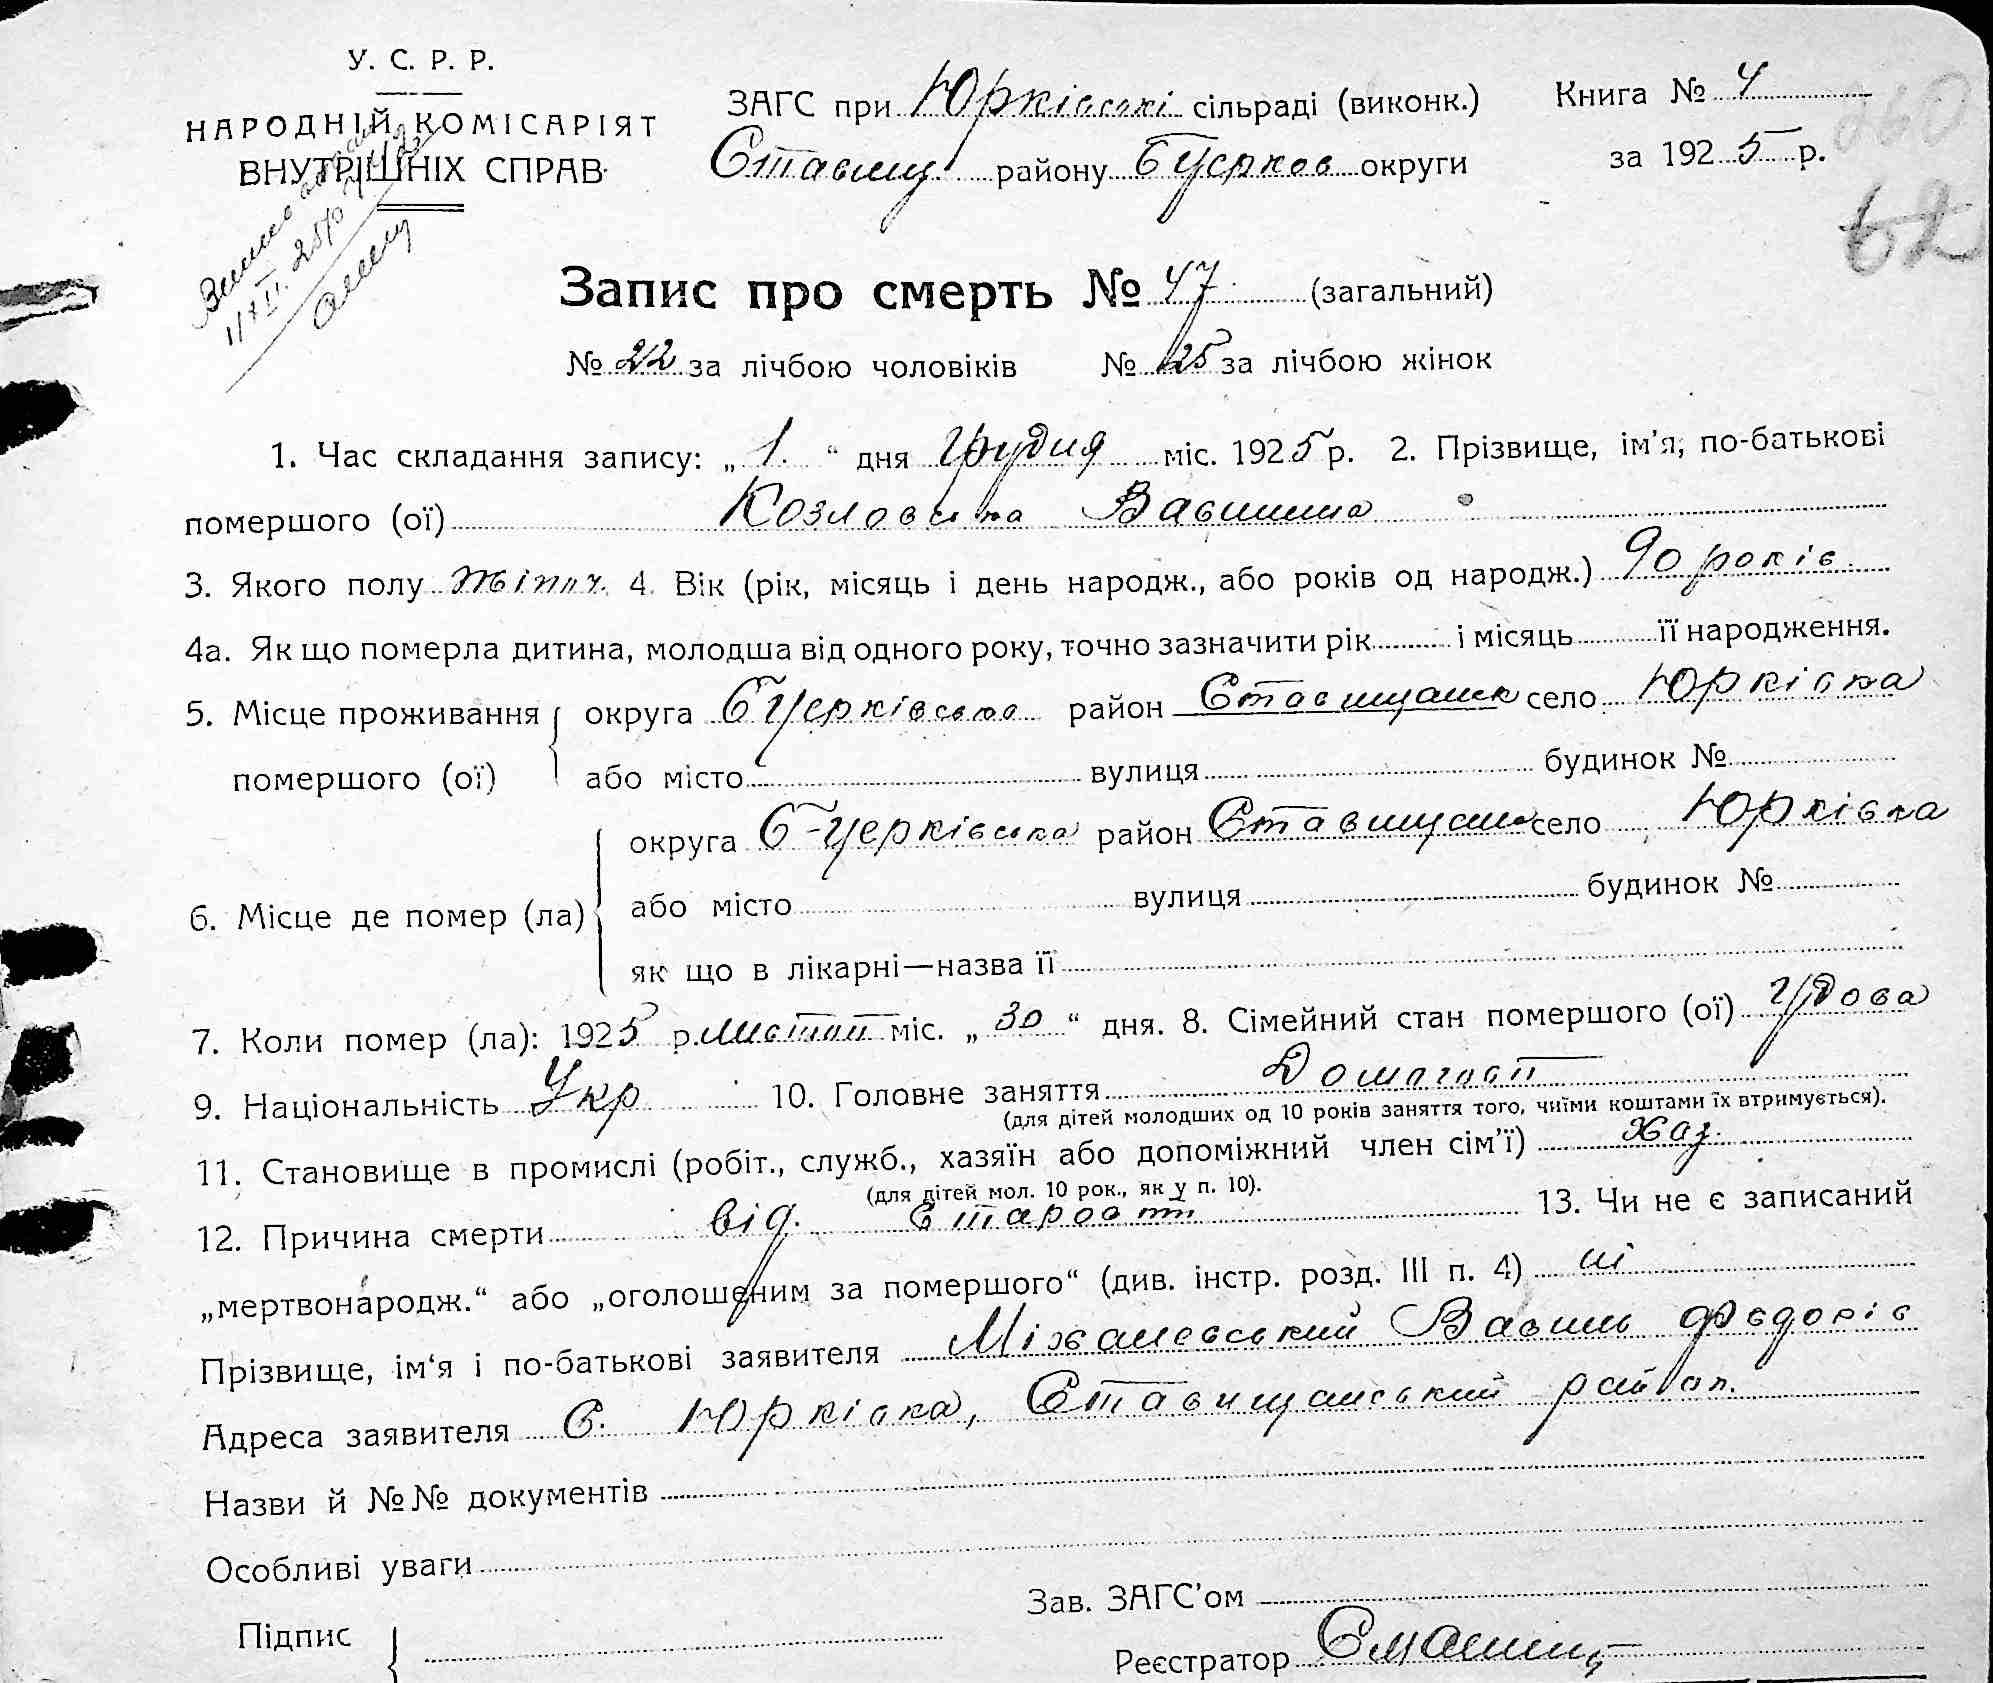 У. С. Р. Р.
НАРОДНІЙ КОМІСАРІЯТ
ВНУТРІШНІХ СПРАВ
ЗАГС при Юрківські сільраді (виконк.)
Ставищ району Бцерков округи
Книга № 4
за 1925 р.
62
Запис про смерть № 47 (загальний)
№ 22 за лічбою чоловіків № 25 за лічбою жінок
1. Час складання запису: „1.“ дня Грудня міс. 1925 р. 2. Прізвище, ім'я, по-батькові
помершого (ої) Козловська
3. Якого полу жіноч. 4. Вік (рік, місяць і день народж., або років од народж.) 90 років
4а. Як що померла дитина, молодша від одного року, точно зазначити рік і місяць її народження.
5. Місце проживання помершого (ої) округа Бцерківська район Ставищанськ село Юрківка
або місто вулиця будинок №
6. Місце де помер (ла) округа Б-Церківська район Ставищанськ село Юрківка
або місто вулиця будинок №
як що в лікарні—назва її
7. Коли помер (ла): 1925 р. Листоп міс. „30“ дня. 8. Сімейний стан помершого (ої) Удова
9. Національність Укр 10. Головне заняття Домогосп
(для дітей молодших од 10 років заняття того, чиїми коштами їх втримується).
11. Становище в промислі (робіт., служб., хазяїн або допоміжний член сім'ї) Хаз.
(для дітей мол. 10 рок., як у п. 10).
12. Причина смерти від Старости 13. Чи не є записаний
„мертвонародж.“ або „оголошеним за помершого“ (див. інстр. розд. III п. 4) ні
Прізвище, ім‘я і по-батькові заявителя Міхалевський Василь Федорів
Адреса заявителя С. Юрківка, Ставищанський район.
Назви й №№ документів
Особливі уваги
Зав. ЗАГС'ом
Підпис
Реєстратор